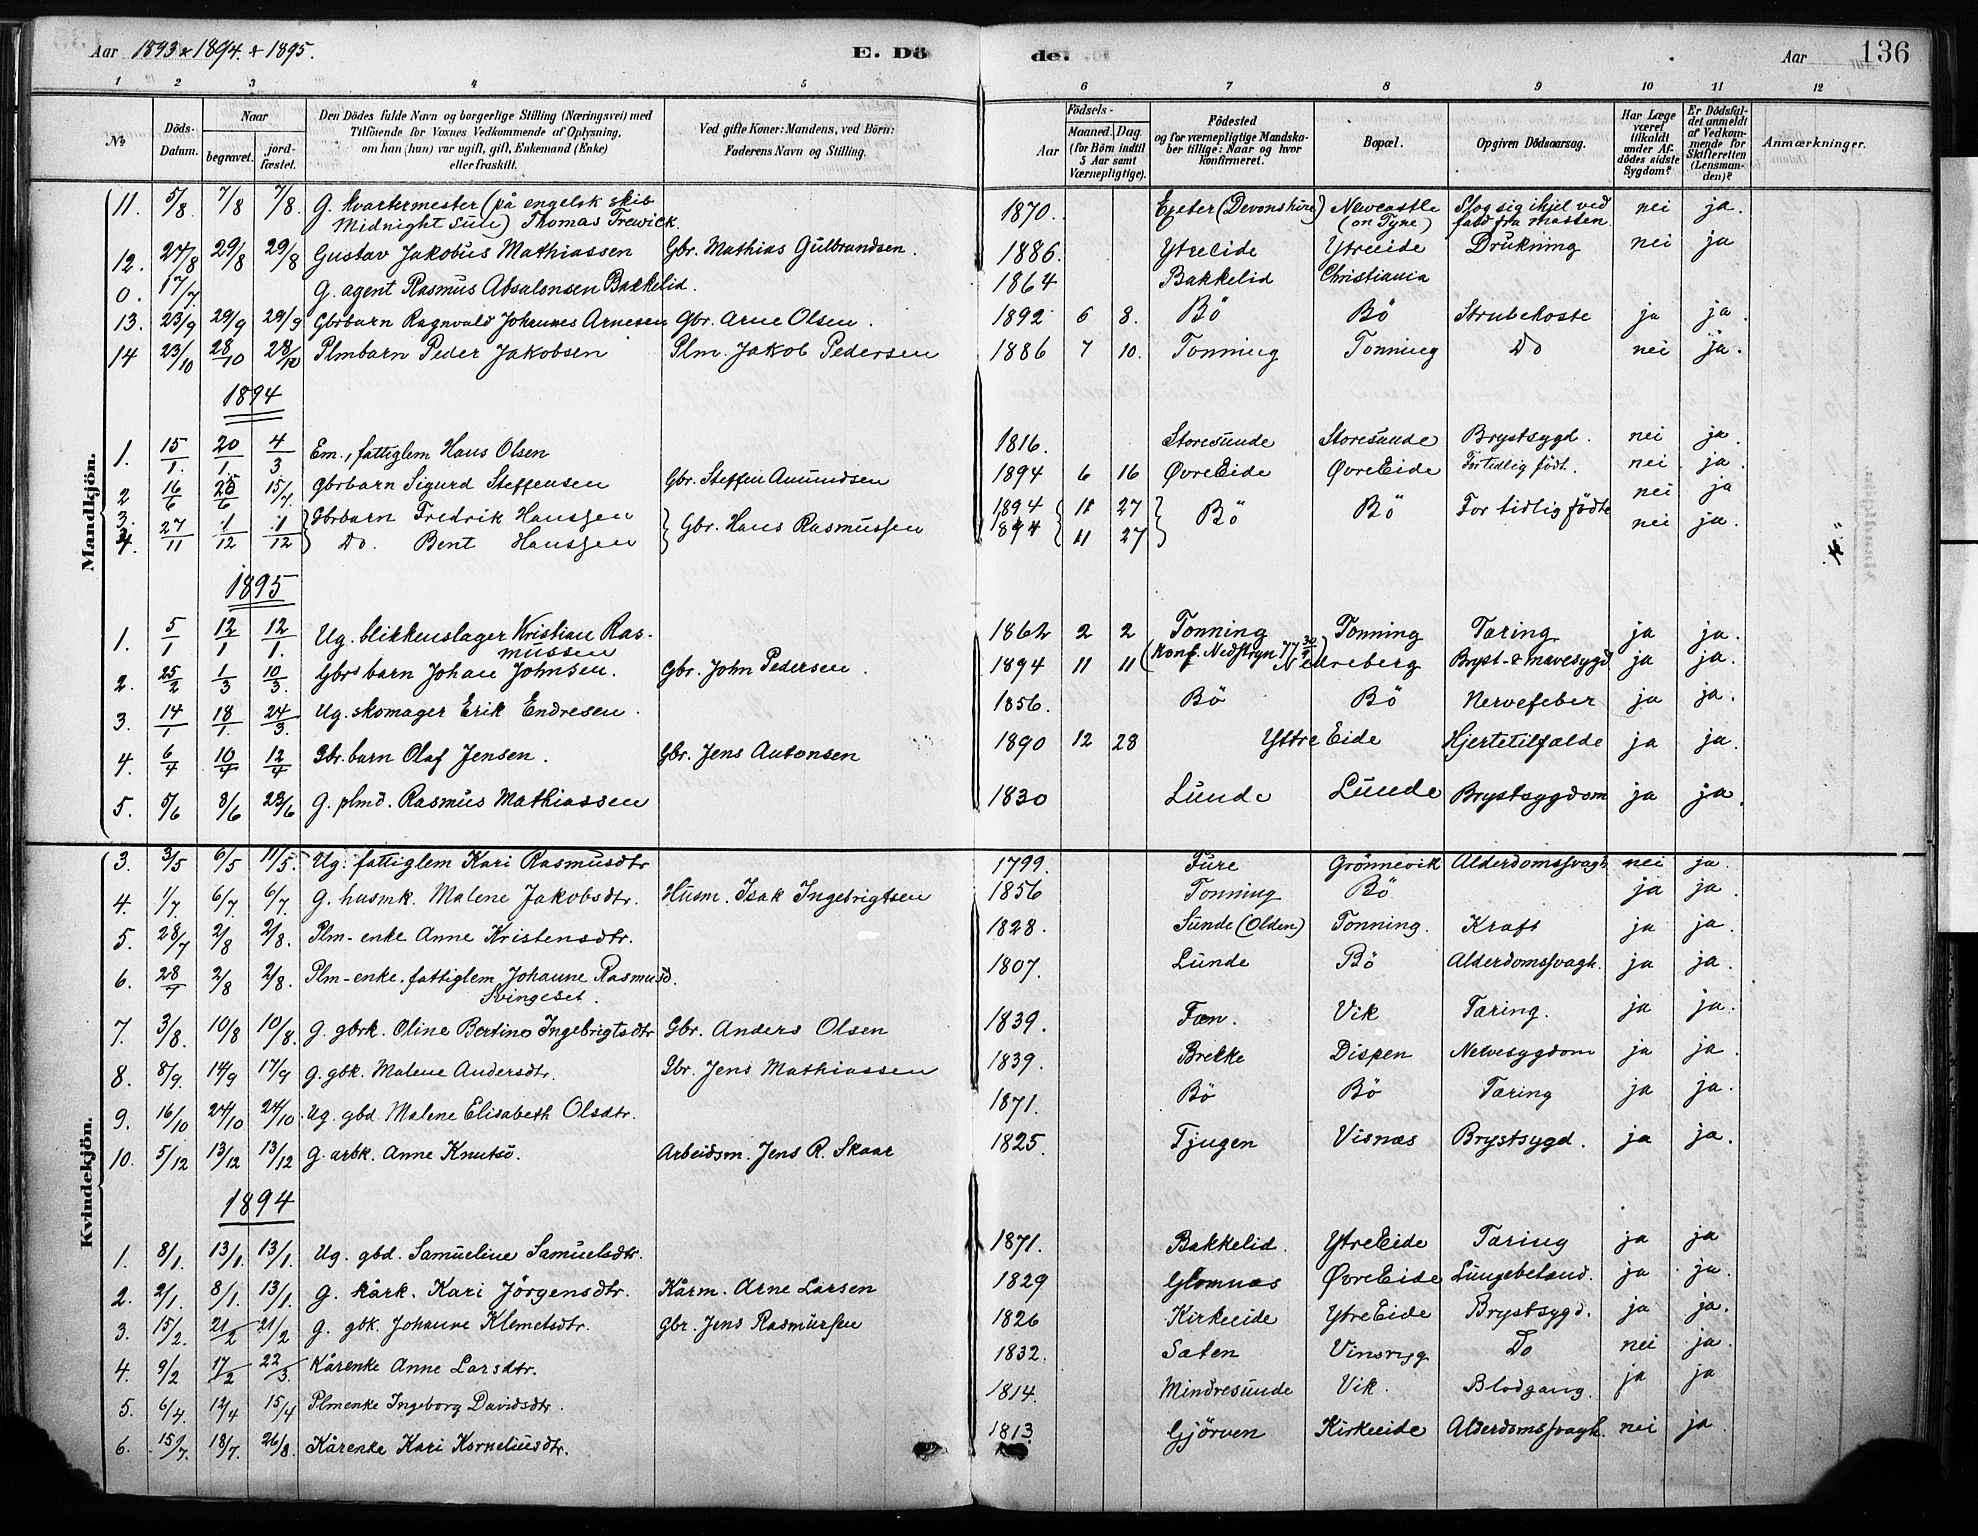 Aar 1893 & 1894. & 1895. E. Dö de. Aar 136
1 2 3 4 5 6 7 8 9 10 11 12
No. Döds-Datum. Naar begravet. jordfæstet. Den Dödes fulde Navn og borgerlige Stilling (Næringsvei) med Tilföiende for Voxnes Vedkommende af Oplysning, om han (hun) var ugift, gift, Enkemand (Enke) eller fraskilt. Ved gifte Koner: Mandens, ved Börn: Faderens Navn og Stilling. Aar Födsels- Maaned. Dag. (for Börn indtil 5 Aar samt Værnepligtige). Födested og for værnepligtige Mandskaber tillige: Naar og hvor konfirmeret. Bopæl. Opgiven Dödsaarsag. Har Læge været tilkaldt under Afdödes sidste Sygdom? Er Dödsfaldet anmeldt af Vedkommende for Skifteretten (Lensmanden)? Anmærkninger.
Mandkjön.
11. 5/8 7/8 7/8. G. kvartermester (på engelsk skib Midnight Sun) Thomas Trewick. 1870. Exeter (Devonshire) Newcastle (on Tyne) Slog sig ihjel ved fald fra masten nei ja.
12. 24/8 29/8 29/8 Gustav Jakobus Mathiassen Gbr. Mathias Gulbrandsen. 1886. Ytreeide Ytreeide Drukning nei ja
0. 17/7. G. agent Rasmus Absalonsen Bakkelid. 1864 Bakkelid Christiania
13. 23/9 29/9 29/9 Gbrbarn Ragnvald Johannes Arnesen Gbr. Arne Olsen. 1892 6 8. Bö Bö Strubehoste ja ja.
14 23/10 28/10 28/10 Plmbarn Peder Jakobsen Plm. Jakob Pedersen 1886 7 10. Tonning Tonning Do nei ja.
1894
1. 15/1. 20/1. 4/3 Em., fattiglem Hans Olsen 1816. Storesunde Storesunde Brystsygd. nei ja.
2 16/6 25/6 15/7 Gbrbarn Sigurd Steffensen Gbr. Steffen Amundsen 1894 6 16 ØvreEide ØvreEide For tidlig født. nei ja.
3. 27/11 1/12 1/12 Gbrbarn Fredrik Hanssen Gbr. Hans Rasmussen 1894 11 27 Bö Bö For tidlig födte nei ja
4. Do. Bent Hanssen 1894 11 27 nei ja.
1895
1. 5/1 12/1 12/1. Ug. blikkenslager Kristian Rasmussen 1862 2 2 Tonning (Konf. Nedstryn 77 30/9) Tonning Tæring ja ja.
2. 25/2 1/3 10/3. Gbrs barn Johan Johnsen. Gbr. John Pedersen. 1894 11 11 Nedreberg Bryst- & mavesygd ja ja.
3. 14/1 18/1. 24/3. Ug. skomager Erik Endresen. 1856. Bö Bö Nervefeber ja ja.
4. 6/4 10/4 12/4 Gbr. barn Olaf Jensen. Gbr. Jens Antonsen 1890 12 28 Yttre Eide Hjertetilfælde ja ja.
5. 5/6 8/6 23/6 G. plmd. Rasmus Mathiassen 1830 Lunde Lunde Brystsygdom ja ja.
Kvindekjön.
3. 3/5 6/5 11/5. Ug. fattiglem Kari Rasmusdtr 1799. Fure Grönnevik Alderdomssvagh. nei ja.
4. 1/7. 6/7 6/7. G. husmk. Malene Jakobsdtr. Husm. Isak Ingebrigtsen 1856 Tonning Bö ja ja.
5. 28/7 2/8 2/8. Plm-enke Anne Kristensdtr. 1828. Sunde (Olden) Tonning. Kræft ja ja.
6. 28/7 2/8 2/8. Plm-enke, fattiglem Johanne Rasmusd. Svingeset. 1807. Lunde Bö Alderdomssvagh. ja ja.
7. 3/8. 10/8 10/8. G. gbrk. Oline Bertine Ingebrigtsdtr Gbr. Anders Olsen 1839. Fæn. Vik Tæring. ja ja.
8. 8/9. 14/9 17/9 G. gbk. Malene Andersdtr. Gbr. Jens Mathiassen 1839. Brekke Dispen Nervesygdom ja ja.
9. 16/10 24/10 24/10. Ug. gbd. Malene Elisabeth Olsdtr. 1871. Bö Bö Tæring ja ja.
10. 5/12 13/12 13/12 G. arbk. Anne Knutsd. Arbeidsm. Jens R. Skaar 1825. Tjugen Visnæs Brystsygd. ja ja.
1894
1. 8/1. 13/1. 13/1. Ug. gbd. Samueline Samuelsdtr. 1871. Bakkelid. YtreEide Tæring ja ja
2. 2/1. 8/1. 13/1. G. kårk. Kari Jörgensdtr. Kårm. Arne Larsen 1829 Glomnæs ØvreEide Lungebetænd. ja ja.
3. 15/2. 21/2 21/2 G. gbk. Johanne Klemetsdtr. Gbr. Jens Rasmussen 1826 Kirkeeide YtreEide Brystsygd. ja ja.
4. 9/2 17/2 22/3. Kårenke Anne Larsdtr. 1832. Sæten Vinsryg Do nei ja.
5. 6/4. 12/4 15/4 Plmenke Ingeborg Davidsdtr. 1814. Mindresunde Vik. Blodgang. ja ja
6. 15/7. 18/7 26/8. Kårenke Kari Korneliusdtr. 1813. Gjörven Kirkeeide Alderdomssvagh. nei ja.